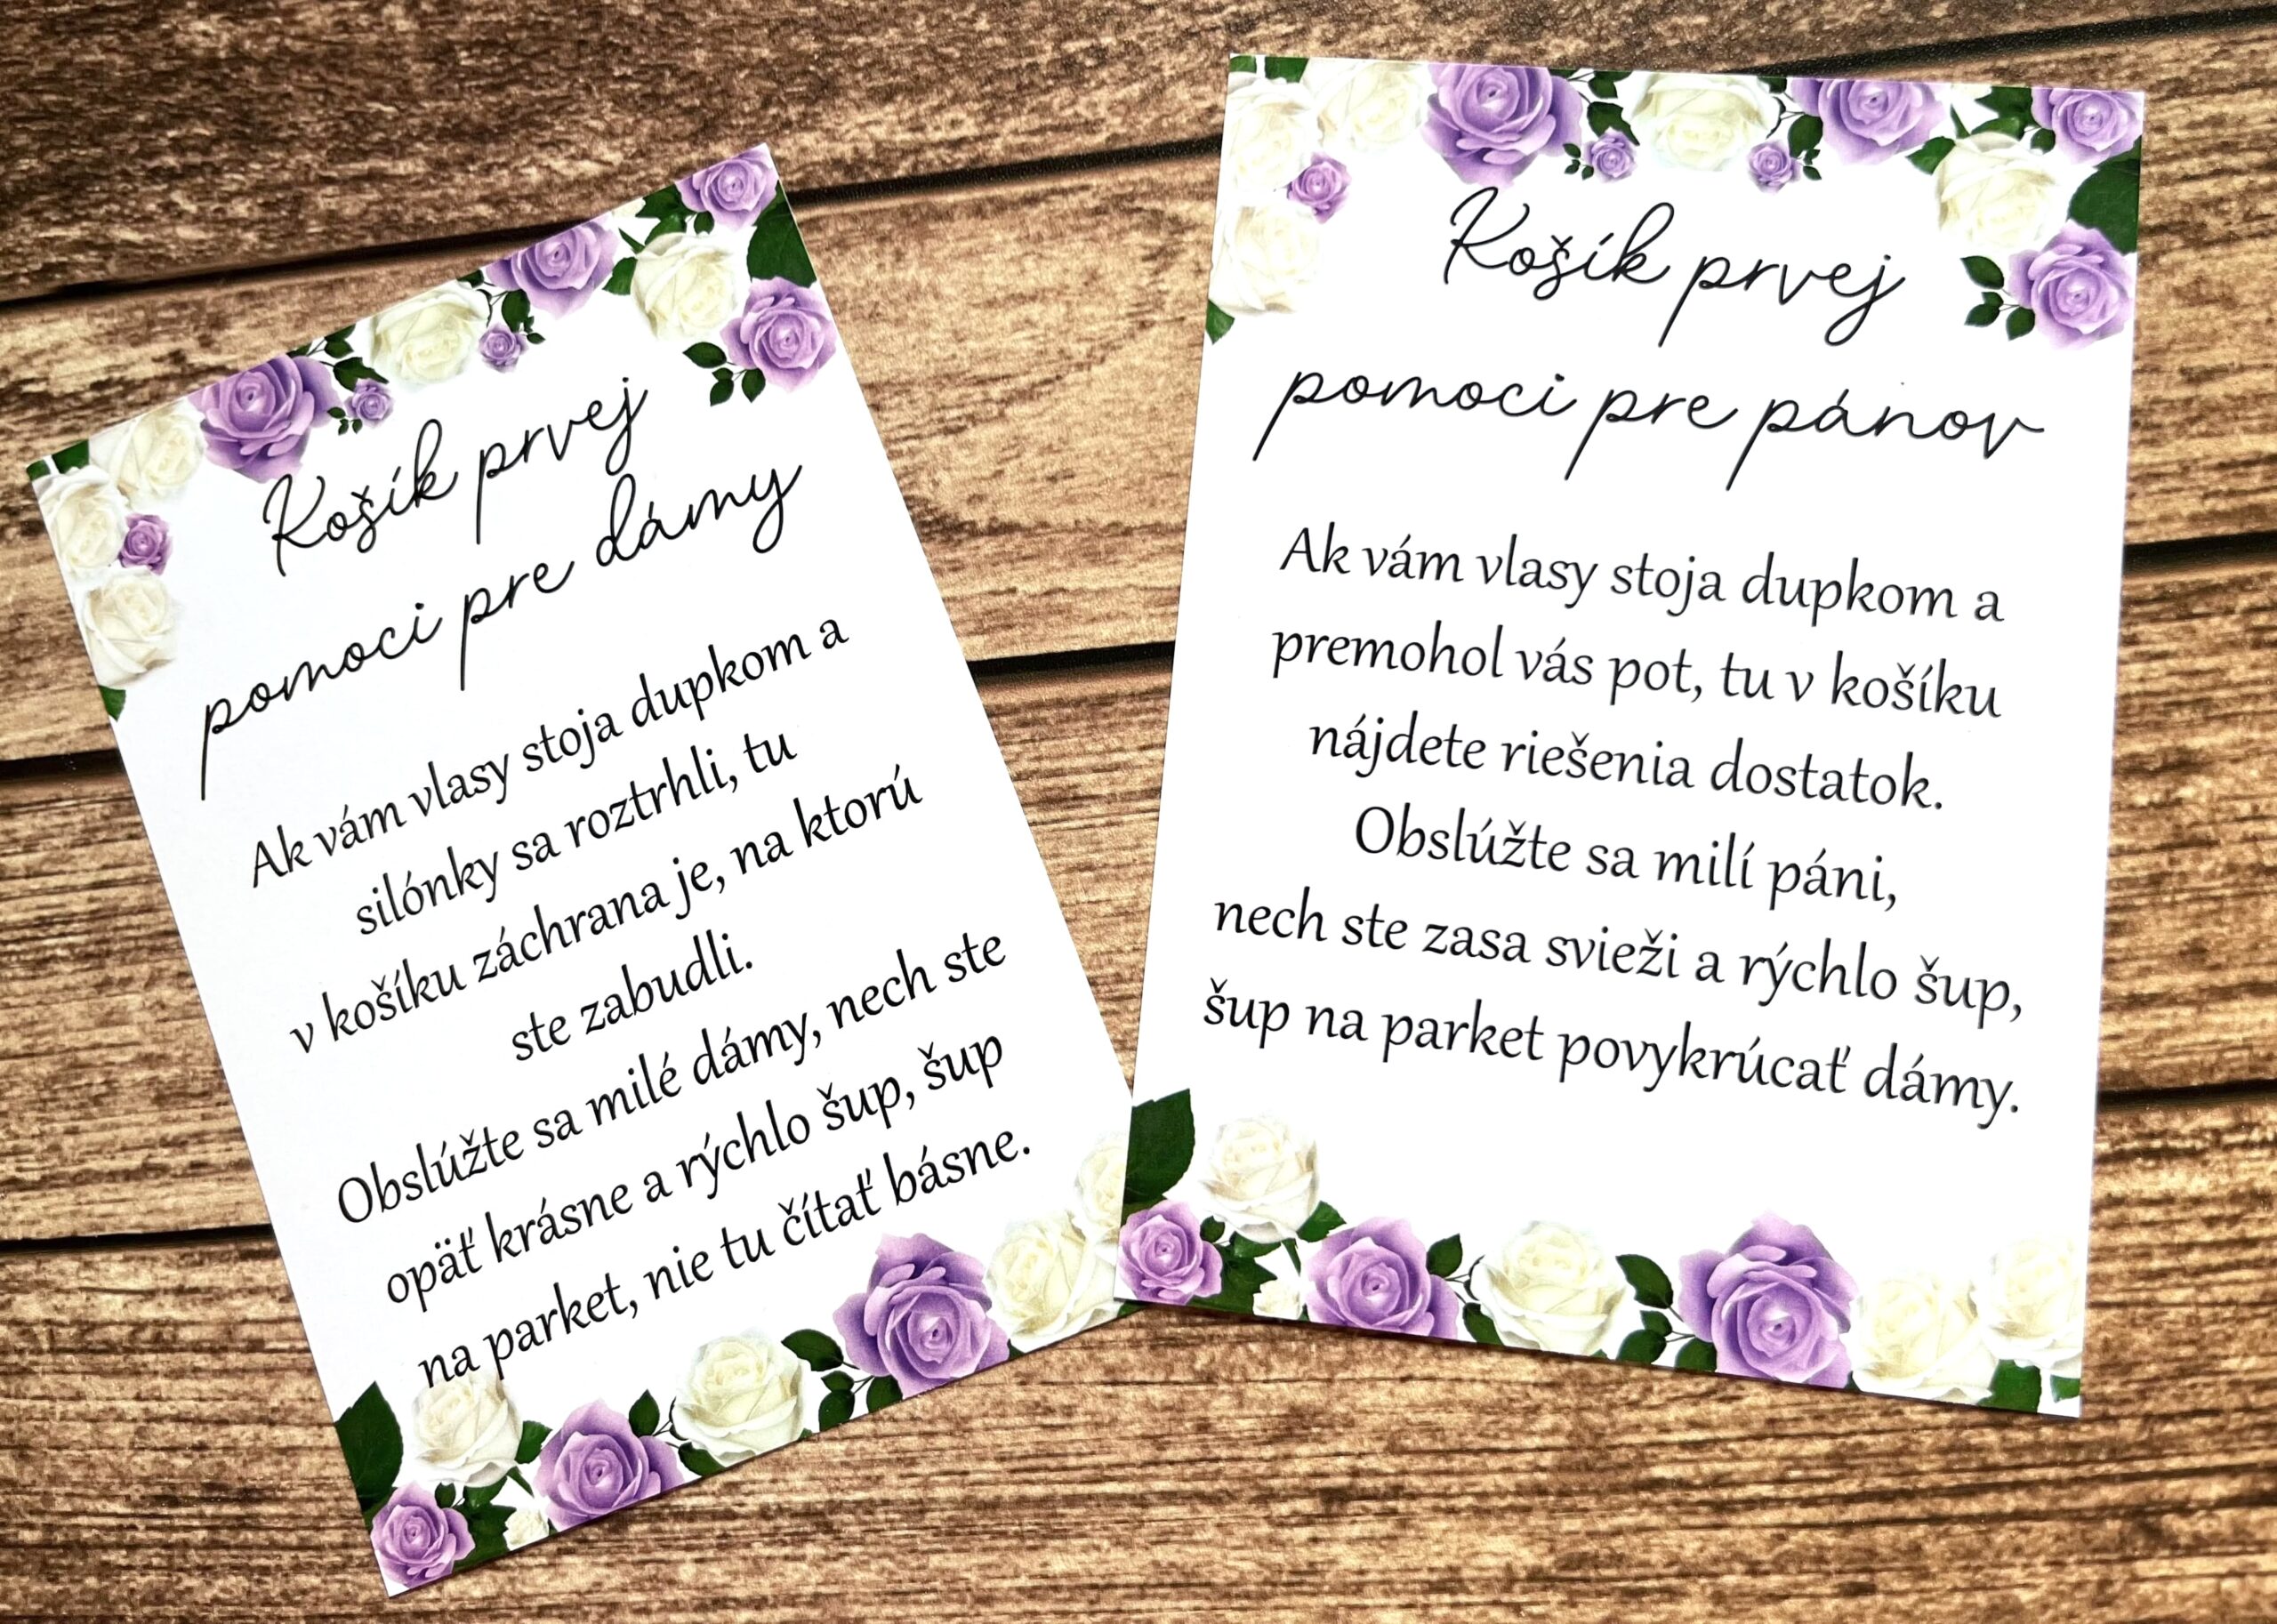 Košík prvej
pomoci pre dámy
Ak vám vlasy stoja dupkom a
silónky sa roztrhli, tu
v košíku záchrana je, na ktorú
ste zabudli.
Obslúžte sa milé dámy, nech ste
opäť krásne a rýchlo šup, šup
na parket, nie tu čítať básne.
Košík prvej
pomoci pre pánov
Ak vám vlasy stoja dupkom a
premohol vás pot, tu v košíku
nájdete riešenia dostatok.
Obslúžte sa milí páni,
nech ste zasa svieži a rýchlo šup,
šup na parket povykrúcať dámy.